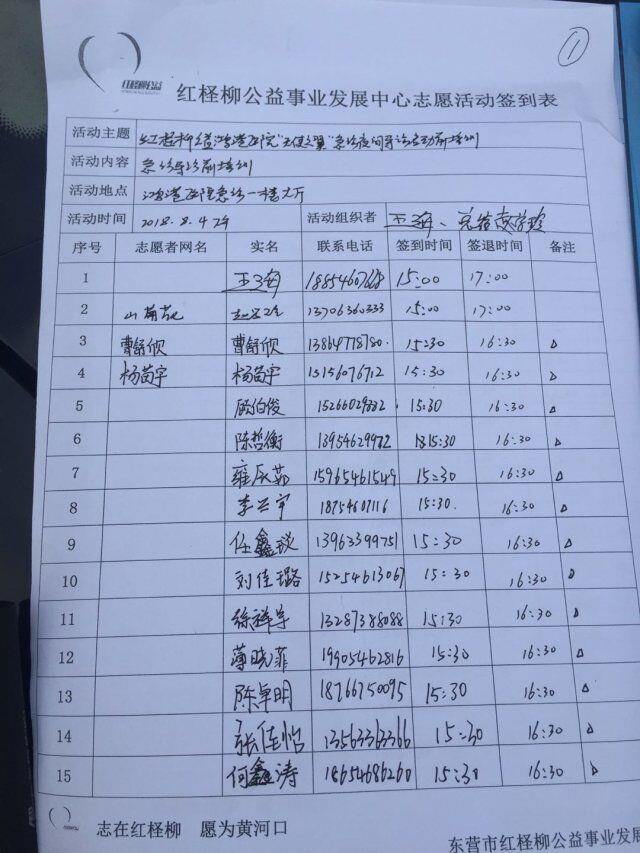 ①
红柽柳公益
红柽柳公益事业发展中心志愿活动签到表
活动主题 红柽柳 鸿港医院"天使之翼"急诊夜间导诊活动前培训
活动内容 急诊导诊前培训
活动地点 鸿港医院急诊一楼大厅
活动时间 2018.8.4 活动组织者 王海、
序号 志愿者网名 实名 联系电话 签到时间 签退时间 备注
1 王海 15:00 17:00
2 山菊花 13706360333 15:00 17:00
3 曹舒欣 曹舒欣 13864778780 15:30 16:30 △
4 杨苗宇 杨苗宇 15156076712 15:30 16:30 △
5 顾伯俊 15266029882 15:30 16:30 △
6 陈哲衡 13954629982 15:30 16:30 △
7 雍辰茹 15965461549 15:30 16:30 △
8 李兰宇 18754607116 15:30 16:30 △
9 任鑫琰 13963399751 15:30 16:30 △
10 刘佳璐 15254613067 15:30 16:30 △
11 徐祥宇 13287388088 15:30 16:30 △
12 薄晓菲 19905462816 15:30 16:30 △
13 陈卓明 18766750095 15:30 16:30 △
14 张佳怡 13563363366 15:30 16:30 △
15 何鑫涛 18654686260 15:30 16:30 △
志在红柽柳 愿为黄河口
东营市红柽柳公益事业发展